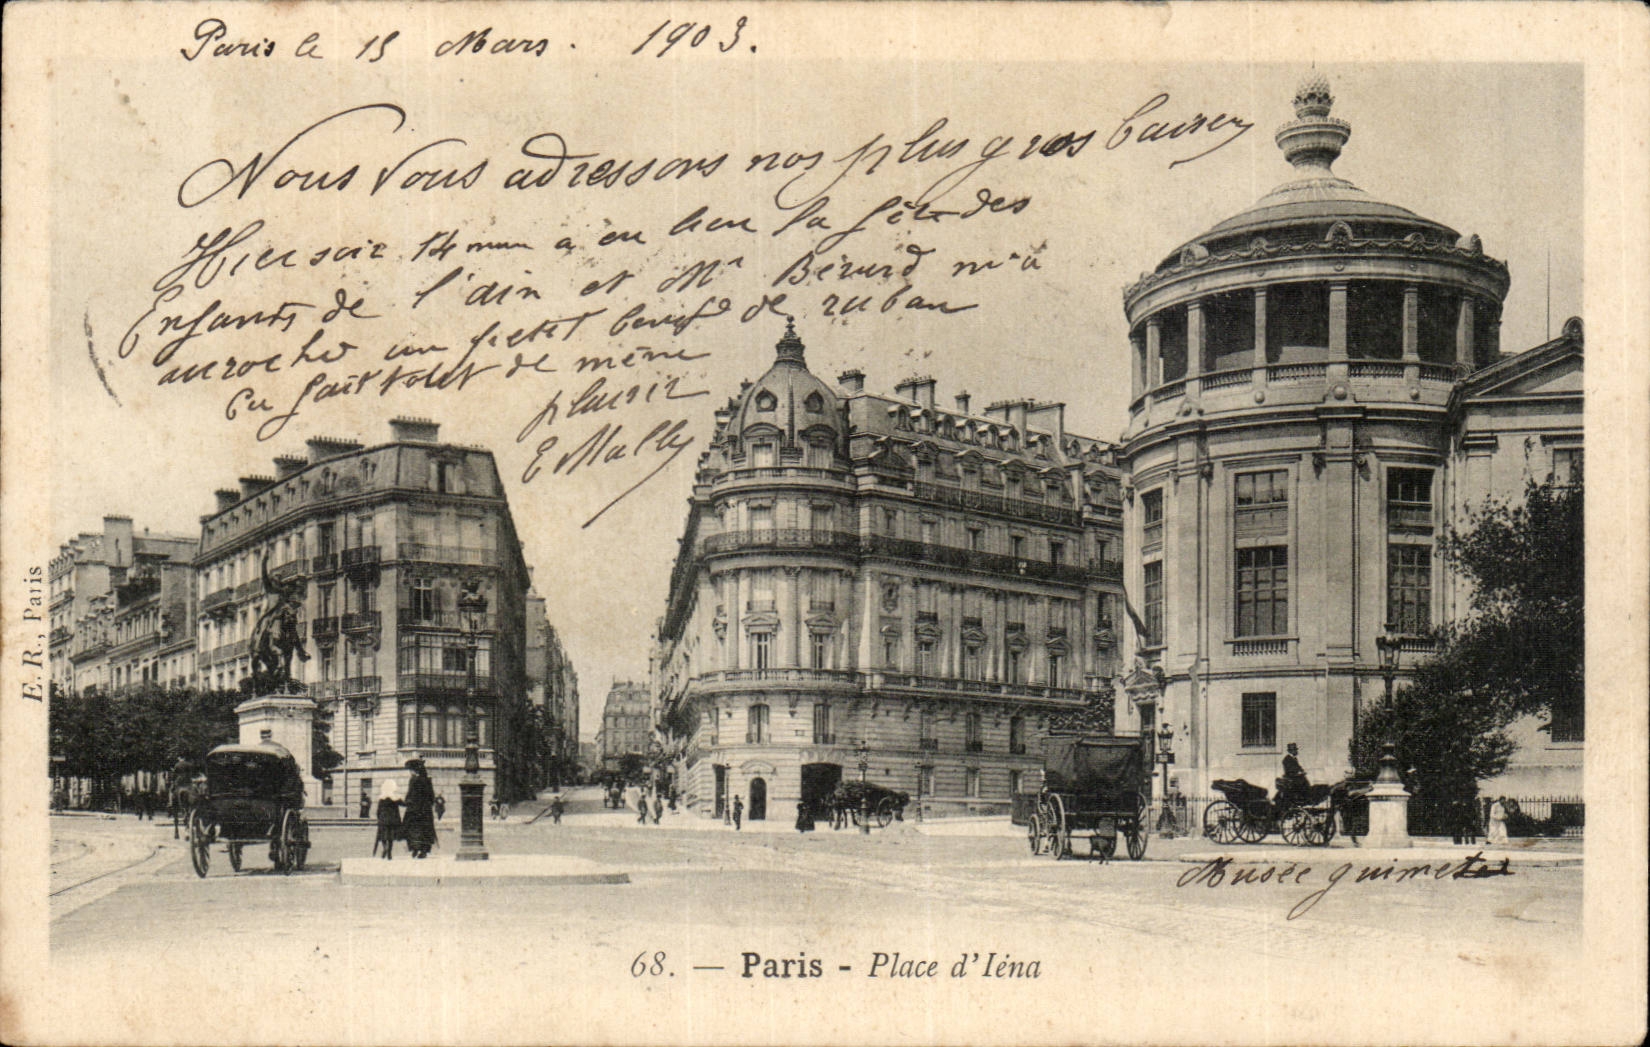 Paris le 15 Mars. 1903.
Nous Vous adressons nos plus gros baisers
Hier soir 14 mars a eu lieu la fête des
Enfants de l'ain et Mr Bérard m'a
accroché un petit bout de ruban
Ca fait tout de même
plaisir
E Mally
E. R., Paris
Musée guimet
68. — Paris - Place d'Iéna